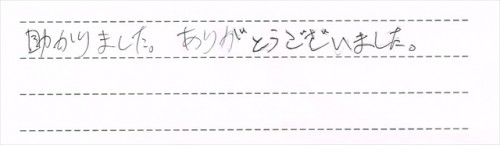 助かりました。ありがとうございました。